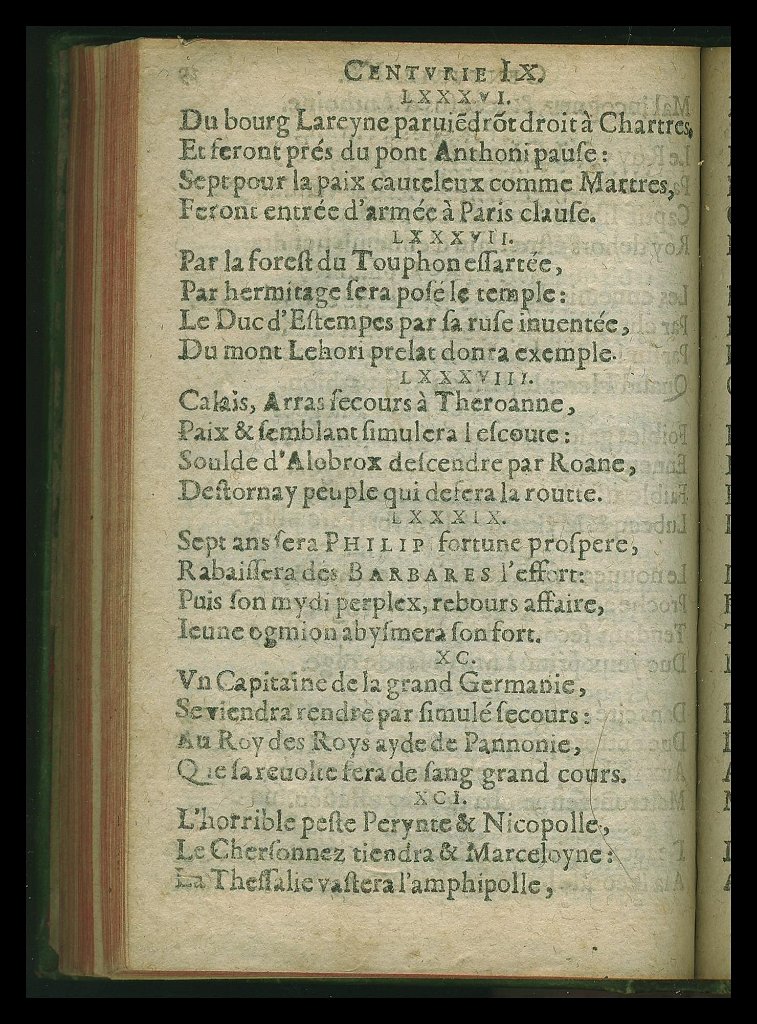 CENTVRIE IX.
LXXXVI.
Du bourg Lareyne paruiẽdrõt droit à Chartres,
Et feront prés du pont Anthoni pauſe:
Sept pour la paix cauteleux comme Martres,
Feront entrée d'armée à Paris clauſe.
LXXXVII.
Par la foreſt du Touphon eſſartée,
Par hermitage ſera poſé le temple:
Le Duc d'Eſtempes par ſa ruſe inuentée,
Du mont Lehori prelat donra exemple.
LXXXVIII.
Calais, Arras ſecours à Theroanne,
Paix & ſemblant ſimulera l eſcoute:
Soulde d'Alobrox deſcendre par Roane,
Deſtornay peuple qui defera la routte.
LXXXIX.
Sept ans ſera PHILIP fortune proſpere,
Rabaiſſera des BARBARES l'effort:
Puis ſon mydi perplex, rebours affaire,
Ieune ogmion abyſmera ſon fort.
XC.
Vn Capitaine de la grand Germanie,
Se viendra rendre par ſimulé ſecours:
Au Roy des Roys ayde de Pannonie,
Que ſa reuolte fera de ſang grand cours.
XCI.
L'horrible peſte Perynte & Nicopolle,
Le Cherſonnez tiendra & Marceloyne:
La Theſſalie vaſtera l'amphipolle,